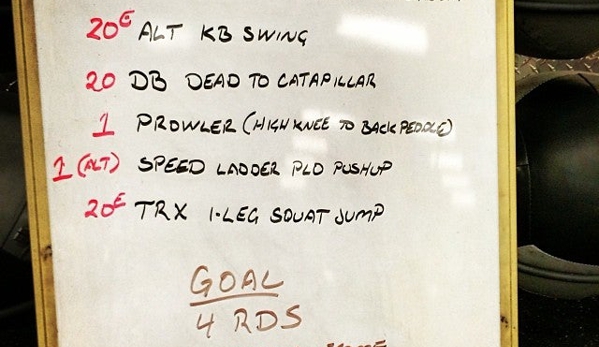 20E ALT KB SWING
20 DB DEAD TO CATAPILLAR
1 PROWLER (HIGH KNEE TO BACK PEDDLE)
1 (ALT) SPEED LADDER PLO PUSHUP
20E TRX 1-LEG SQUAT JUMP
GOAL
4 RDS